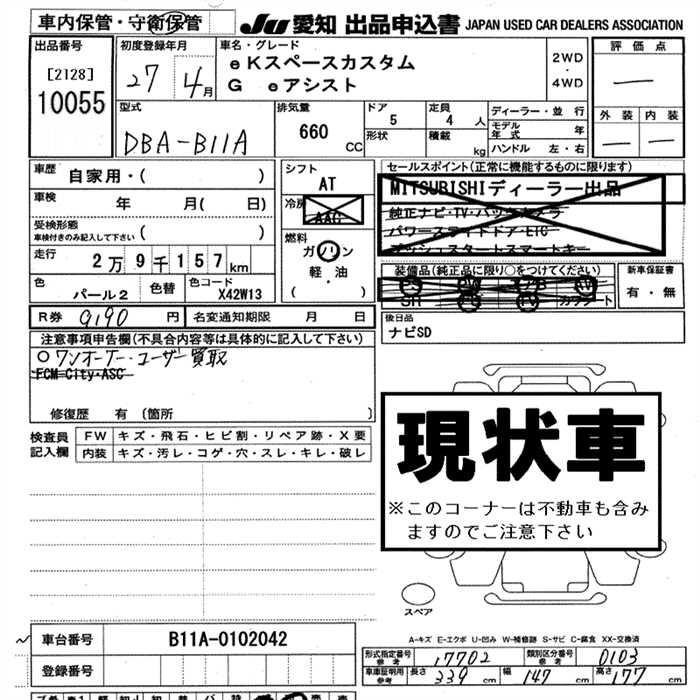 車内保管・守衛保管
JU 愛知 出品申込書 JAPAN USED CAR DEALERS ASSOCIATION
出品番号
[2128]
10055
初度登録年月
27 4月
車名・グレード
eKスペースカスタム
G eアシスト
2WD
・
4WD
評価点
外装 内装
型式
DBA-B11A
排気量
660 CC
ドア
5
形状
定員
4 人
積載
kg
ディーラー・並行
モデル年式 年
ハンドル 左・右
車歴
自家用・( )
車検
年 月( 日)
受検形態
車検付きのみ記入して下さい ( )
走行
2万9千157km
色
パール2
色替
色コード
X42W13
シフト
AT
冷房
AAC
燃料
ガソリン
軽・油
( )
セールスポイント(正常に機能するものに限ります)
MITSUBISHIディーラー出品
純正ナビ・TV・バックカメラ
パワースライドドア・ETC
プッシュスタートスマートキー
装備品(純正品に限り○をつけてください)
PS PW AB AW
SR TV カワシート
新車保証書
有・無
R券 9190 円
名変通知期限 月 日
後日品
ナビSD
注意事項申告欄(不具合内容等は具体的に記入して下さい)
○ワンオーナー・ユーザー買取
FCM=City・ASC
修復歴 有 〔箇所 〕
検査員
記入欄
FW キズ・飛石・ヒビ割・リペア跡・X要
内装 キズ・汚レ・コゲ・穴・スレ・キレ・破レ
現状車
※このコーナーは不動車も含み
ますのでご注意下さい
スペア
A-キズ E-エクボ U-凹み W-補修跡 S-サビ C-腐食 XX-交換済
車台番号 B11A-0102042
登録番号
形式指定番号 参考 17702
類別区分番号 参考 0103
車庫証明用 参考 長さ 339 cm 幅 147 cm 高さ 177 cm